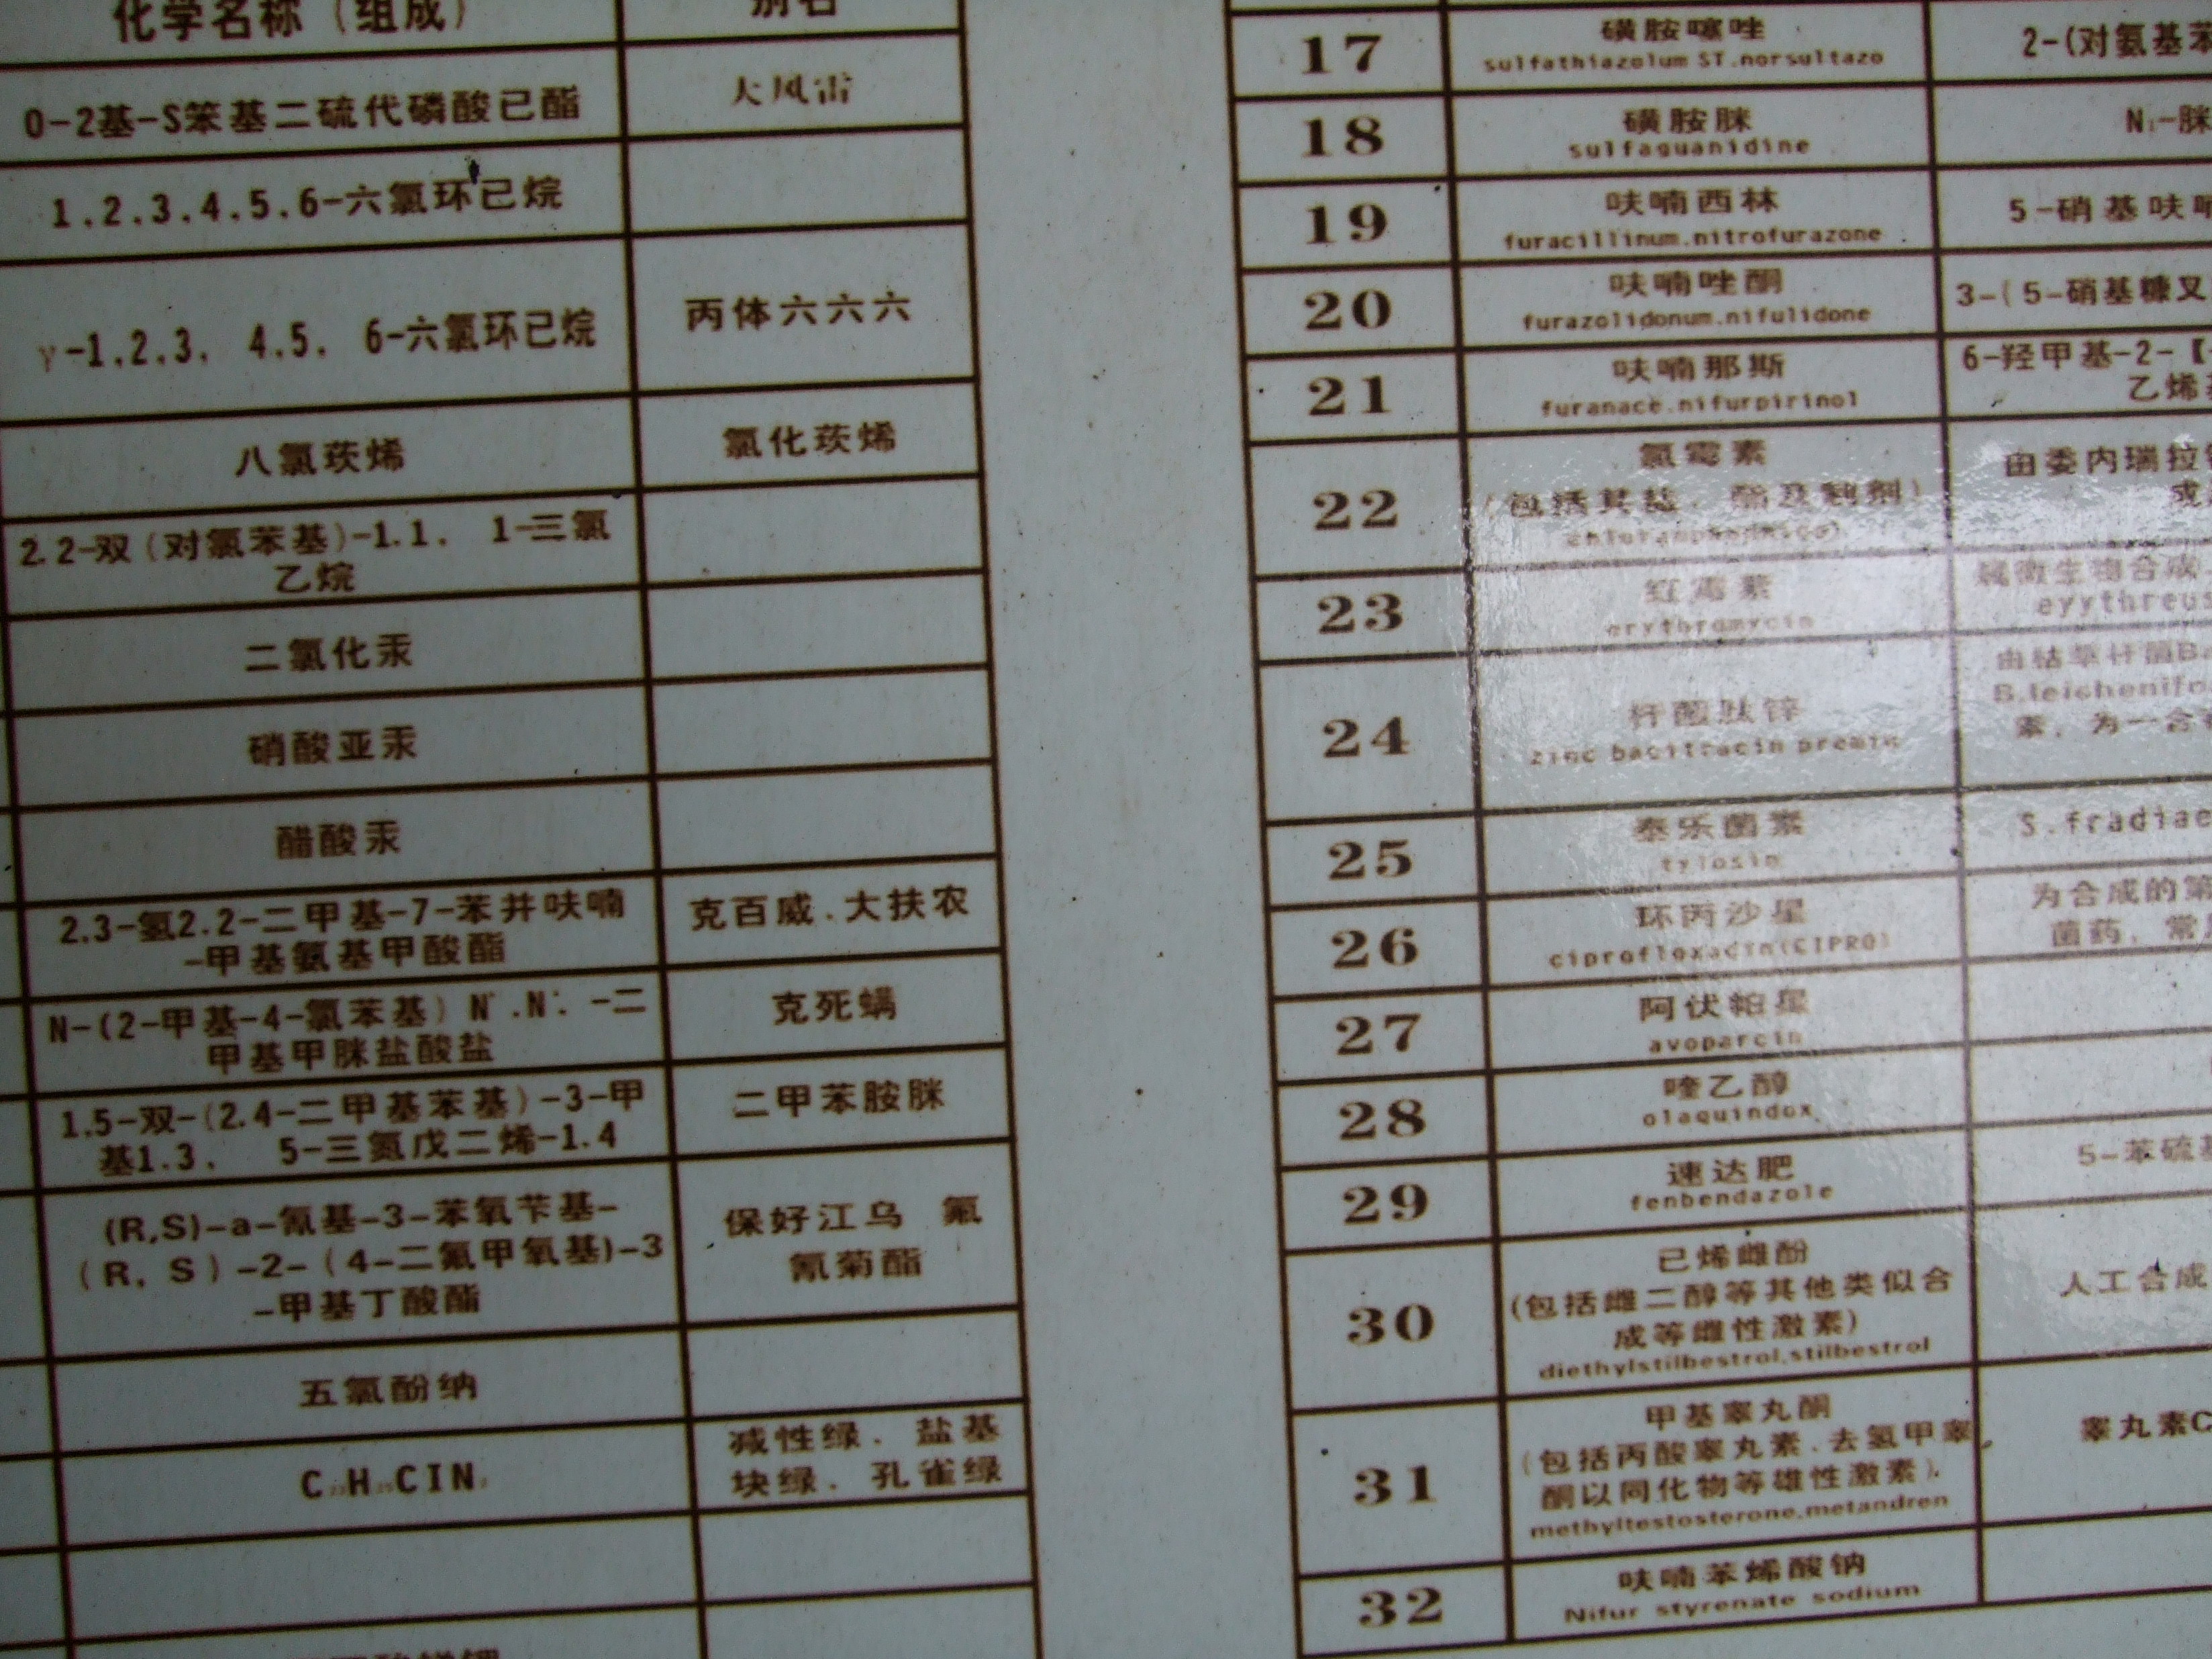 化学名称（组成）
别名
0-2基-S笨基二硫代磷酸已酯
大风雷
1.2.3.4.5.6-六氯环已烷
γ-1.2.3. 4.5. 6-六氯环已烷
丙体六六六
八氯莰烯
氯化莰烯
2.2-双(对氯苯基)-1.1. 1-三氯
乙烷
二氯化汞
硝酸亚汞
醋酸汞
2.3-氢2.2-二甲基-7-苯并呋喃
-甲基氨基甲酸酯
克百威.大扶农
N-(2-甲基-4-氯苯基) N'.N'. -二
甲基甲脒盐酸盐
克死螨
1.5-双-(2.4-二甲基苯基)-3-甲
基1.3. 5-三氮戊二烯-1.4
二甲苯胺脒
(R,S)-a-氰基-3-苯氧苄基-
(R, S)-2-(4-二氟甲氧基)-3
-甲基丁酸酯
保好江乌 氟
氰菊酯
五氯酚纳
C23H25CIN2
减性绿. 盐基
块绿. 孔雀绿
17
磺胺噻唑
sulfathiazolum ST.norsultazo
2-(对氨基苯
18
磺胺脒
sulfaguanidine
N1-脒
19
呋喃西林
furacillinum.nitrofurazone
5-硝基呋喃
20
呋喃唑酮
furazolidonum.nifulidone
3-(5-硝基糠叉
21
呋喃那斯
furanace.nifurpirinol
6-羟甲基-2-【
乙烯
22
氯霉素
(包括其盐. 酯及制剂)
由委内瑞拉
成
23
红霉素
erythromycin
属微生物合成
eyythreus
24
杆菌肽锌
zinc bacitracin premin
由枯草杆菌B.
B.leichenifo
素, 为一合
25
泰乐菌素
tylosin
S.fradiae
26
环丙沙星
ciprofloxacin(CIPRO)
为合成的第
菌药, 常
27
阿伏帕星
avoparcin
28
喹乙醇
olaquindox
29
速达肥
fenbendazole
5-苯硫基
30
已烯雌酚
(包括雌二醇等其他类似合
成等雌性激素)
diethylstilbestrol,stilbestrol
人工合成
31
甲基睾丸酮
(包括丙酸睾丸素.去氢甲睾
酮以同化物等雄性激素).
methyltestosterone,metandren
睾丸素C
32
呋喃苯烯酸钠
Nifur styrenate sodium